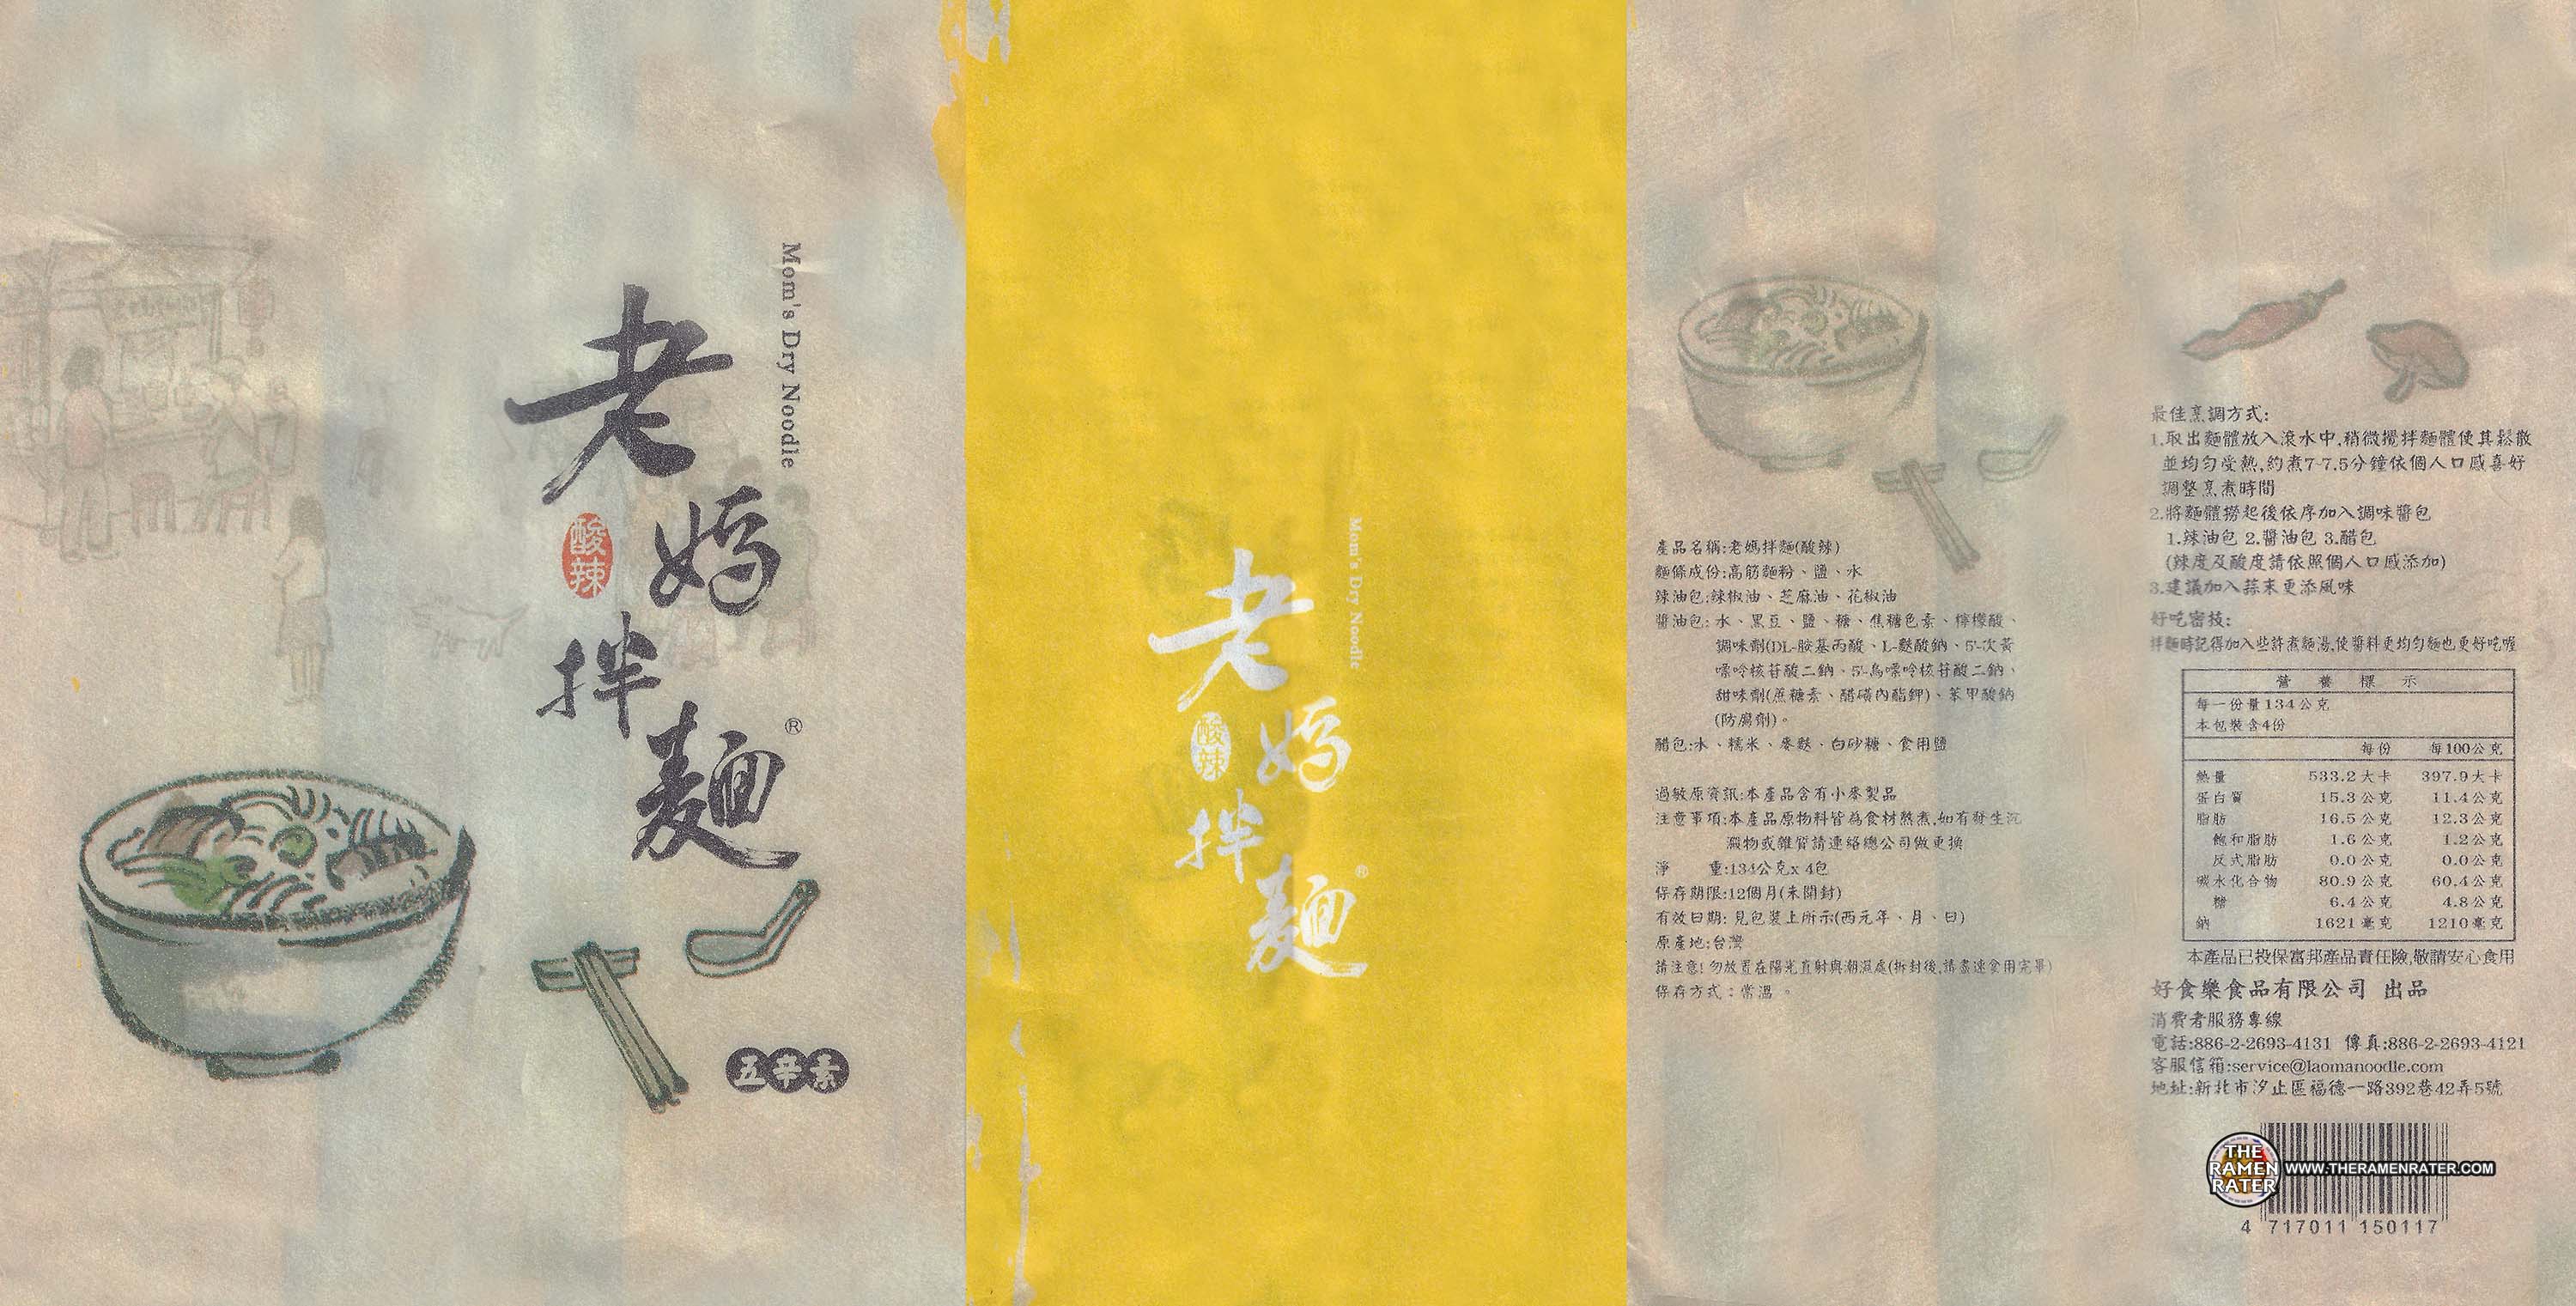 Mom's Dry Noodle
老媽拌麵
®
酸辣
五辛素
Mom's Dry Noodle
老媽拌麵
®
酸辣
產品名稱:老媽拌麵(酸辣)
麵條成份:高筋麵粉、鹽、水
辣油包:辣椒油、芝麻油、花椒油
醬油包:水、黑豆、鹽、糖、焦糖色素、檸檬酸、
調味劑(DL-胺基丙酸、L-麩酸鈉、5'-次黃
嘌呤核苷酸二鈉、5'-鳥嘌呤核苷酸二鈉、
甜味劑(蔗糖素、醋磺內酯鉀)、苯甲酸鈉
(防腐劑)。
醋包:水、糯米、麥麩、白砂糖、食用鹽
過敏原資訊:本產品含有小麥製品
注意事項:本產品原物料皆為食材熬煮,如有發生沉
澱物或雜質請連絡總公司做更換
淨 重:134公克x 4包
保存期限:12個月(未開封)
有效日期: 見包裝上所示(西元年、月、日)
原產地:台灣
請注意! 勿放置在陽光直射與潮濕處(拆封後,請盡速食用完畢)
保存方式:常溫。
最佳烹調方式:
1.取出麵體放入滾水中,稍微攪拌麵體使其鬆散
並均勻受熱,約煮7-7.5分鐘依個人口感喜好
調整烹煮時間
2.將麵體撈起後依序加入調味醬包
1.辣油包 2.醬油包 3.醋包
(辣度及酸度請依照個人口感添加)
3.建議加入蒜末更添風味
好吃密技:
拌麵時記得加入些許煮麵湯,使醬料更均勻麵也更好吃喔
營養標示
每一份量134公克
本包裝含4份
每份 每100公克
熱量 533.2大卡 397.9大卡
蛋白質 15.3公克 11.4公克
脂肪 16.5公克 12.3公克
飽和脂肪 1.6公克 1.2公克
反式脂肪 0.0公克 0.0公克
碳水化合物 80.9公克 60.4公克
糖 6.4公克 4.8公克
鈉 1621毫克 1210毫克
本產品已投保富邦產品責任險,敬請安心食用
好食樂食品有限公司 出品
消費者服務專線
電話:886-2-2693-4131 傳真:886-2-2693-4121
客服信箱:service@laomanoodle.com
地址:新北市汐止區福德一路392巷42弄5號
THE
RAMEN
RATER
WWW.THERAMENRATER.COM
4 717011 150117